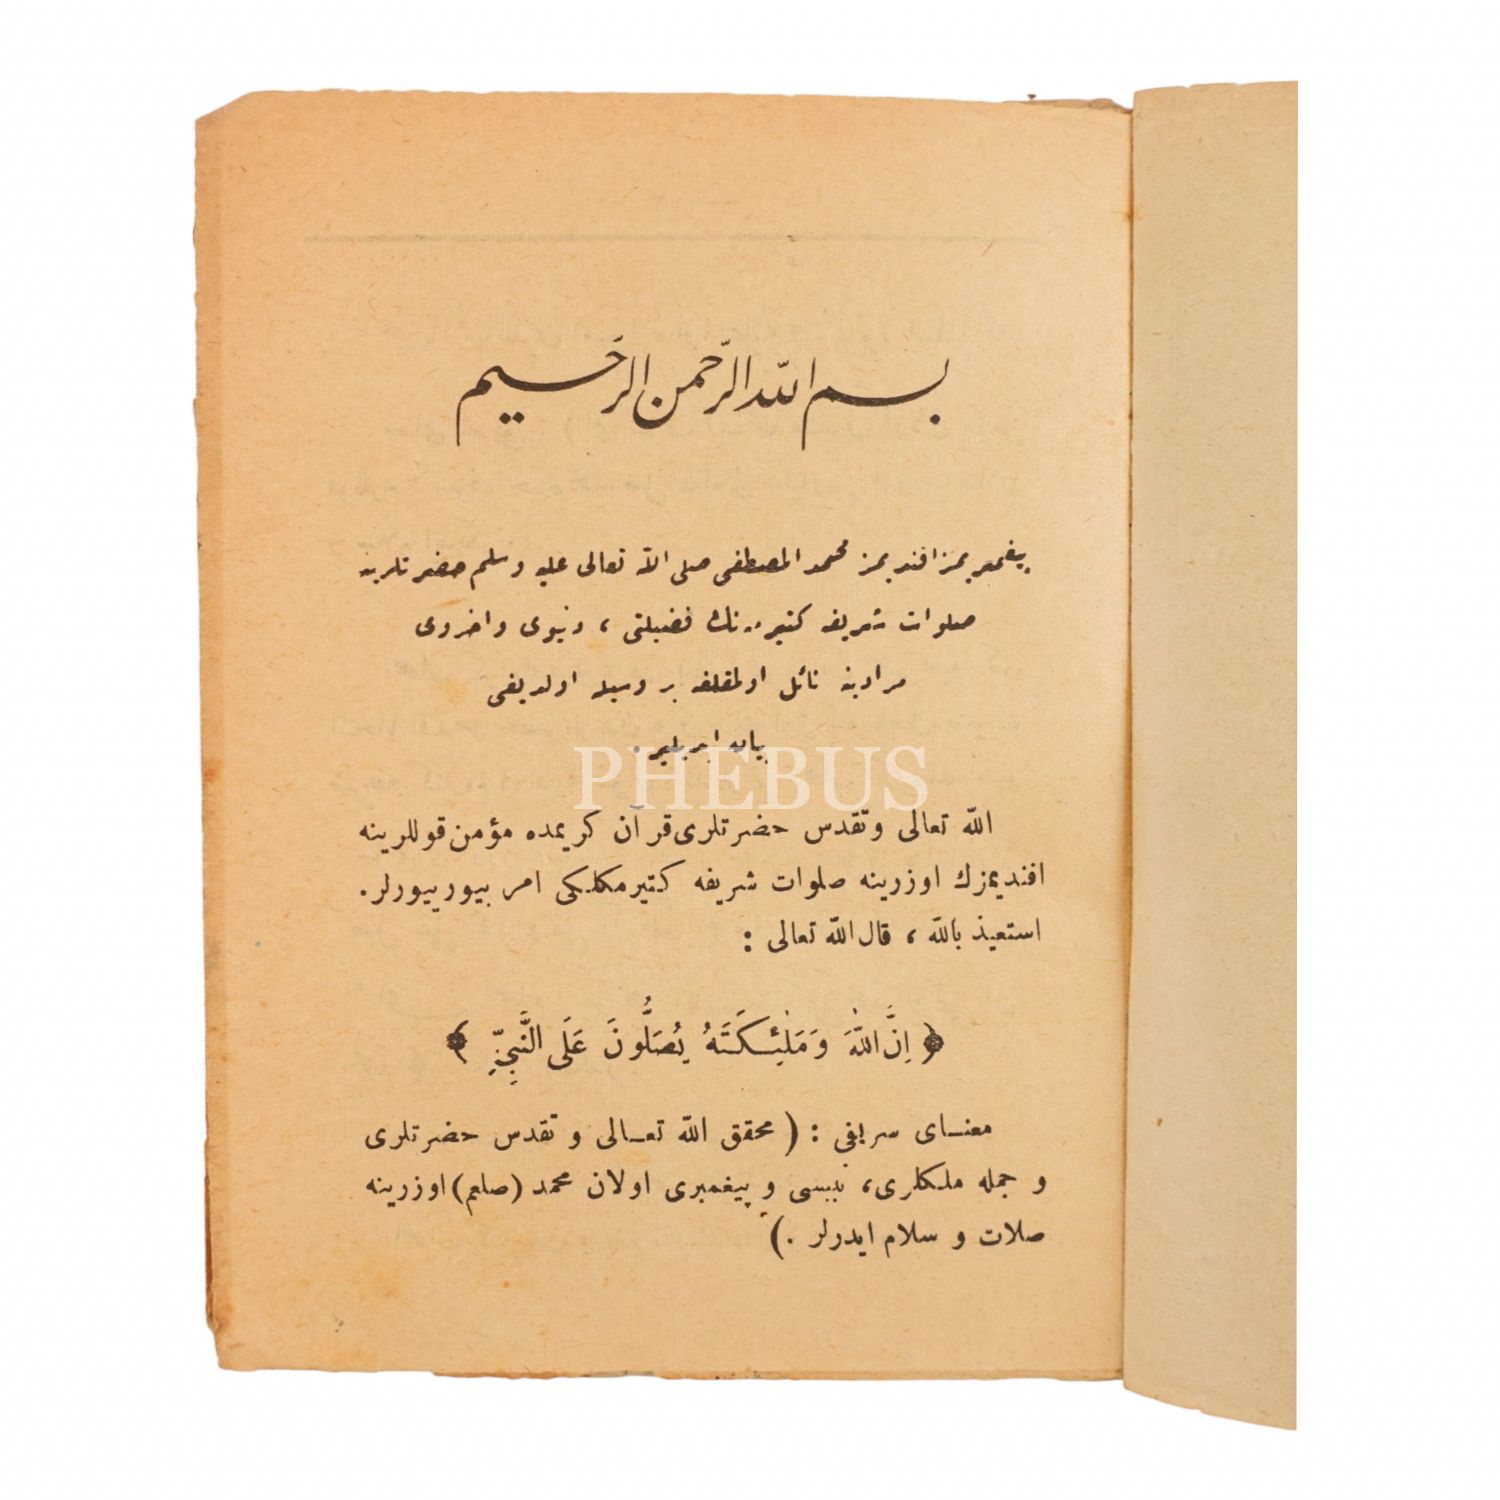 بسم الله الرَّحمن الرَّحيم
پيغمبريمز افنديمز محمد المصطفى صلى الله تعالى عليه وسلم حضرتلرينه
صلوات شريفه كتيرمه‌نك فضيلتى ، دنيوى واخروى
مرادينه نائل اولمقلغه بر وسيله اولديغى
بيان ايديلير .
PHEBUS
الله تعالى وتقدس حضرتلرى قرآن كريمده مؤمن قوللرينه
افنديمزك اوزرينه صلوات شريفه كتيرمكلكى امر بيوريورلر.
استعيذ بالله ، قال الله تعالى :
﴿ اِنَّ اللّٰهَ وَمَلٰئِكَتَهُ يُصَلُّونَ عَلَى النَّبِيِّ ﴾
معناى شريفى : ( محقق الله تعالى و تقدس حضرتلرى
و جمله ملكلرى، نبيسى و پيغمبرى اولان محمد (صلعم) اوزرينه
صلات و سلام ايدرلر .)